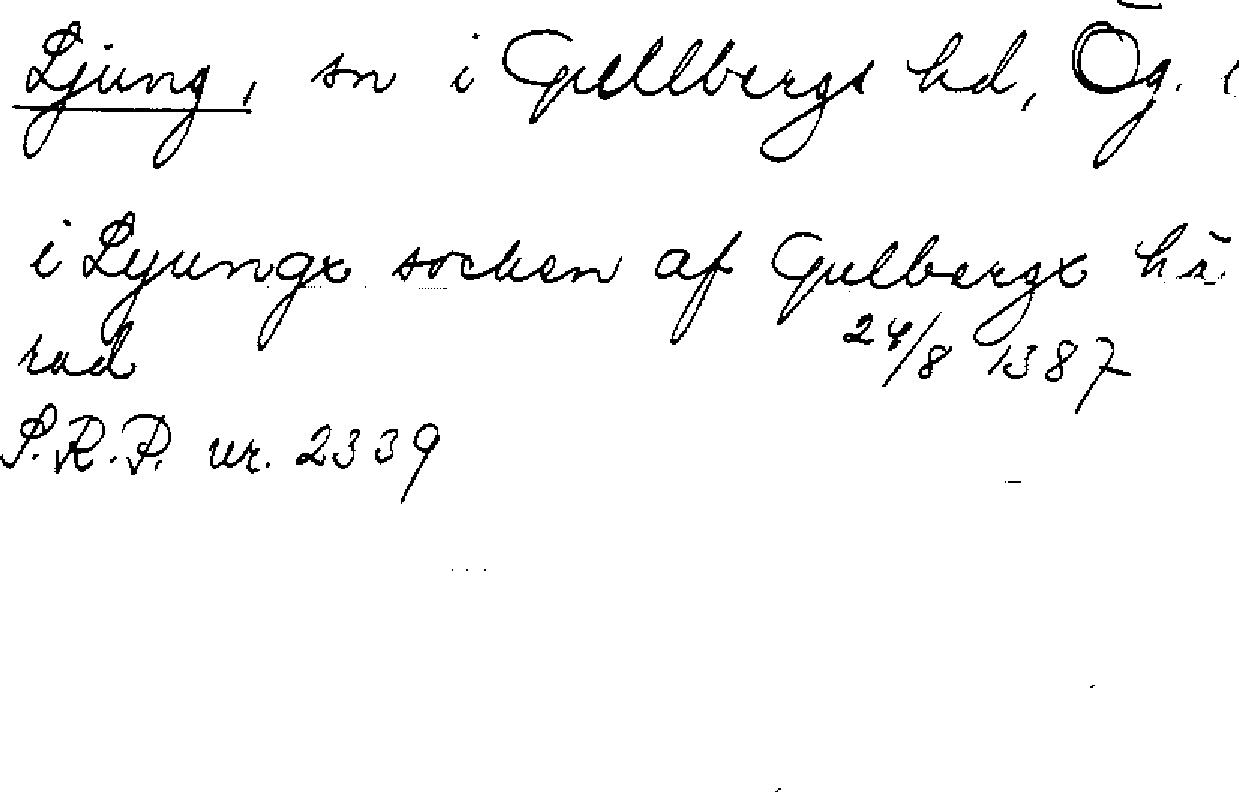 Ljung, sn i Gullbergs hd, Ög.
i Lyungx socken af Gulbergx hä
rad 24/8 1387
S.R.P. nr. 2339